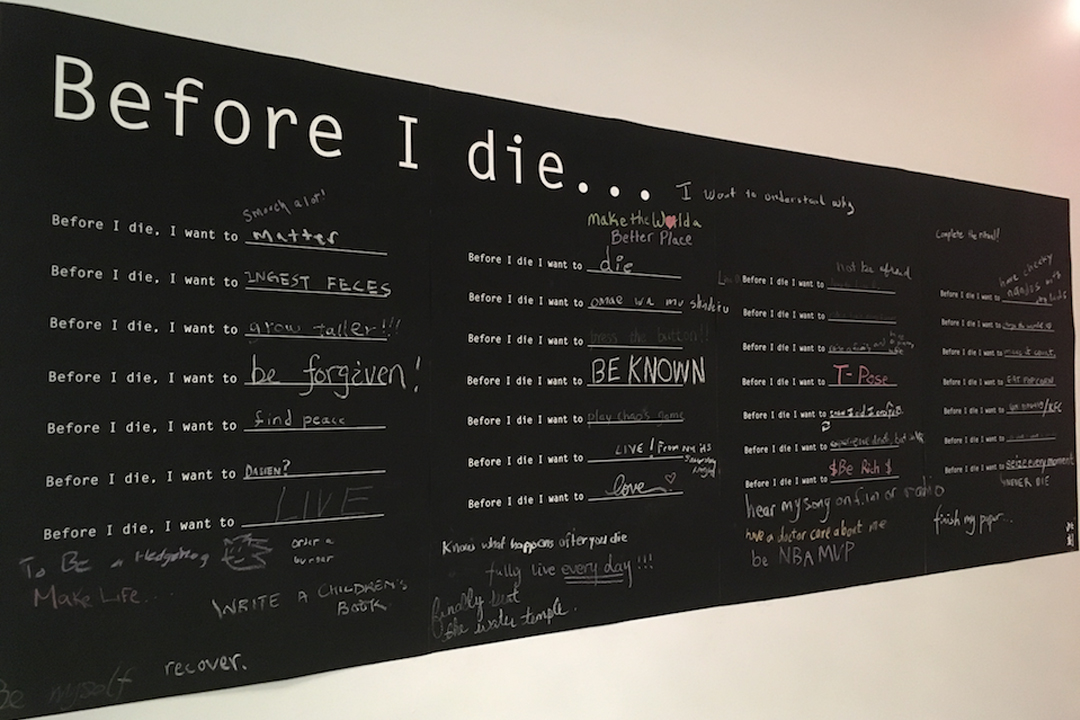 Before I die...
I want to understand why
smooch a lot!
Before I die, I want to matter
Before I die, I want to INGEST FECES
Before I die, I want to grow taller!!!
Before I die, I want to be forgiven!
Before I die, I want to find peace
Before I die, I want to DASIEN?
Before I die, I want to LIVE
To BE a Hedgehog
order a
burner
Make Life...
WRITE A CHILDREN'S
BOOK
recover.
Be myself
make the World a
Better Place
Before I die I want to die
Before I die I want to omae wa mu shindeiru
Before I die I want to press the button!!
Before I die I want to BE KNOWN
Before I die I want to play chao's game
Before I die I want to LIVE! From
Before I die I want to love
Know what happens after you die
fully live every day!!!
finally beat
the water temple.
not be afraid
Before I die I want to
Before I die I want to
Before I die I want to
Before I die I want to T-Pose
Before I die I want to
Before I die I want to experience death, but
$Be Rich$
Before I die I want to
hear my song on film or radio
have a doctor care about me
be NBA MVP
Complete the ritual!
have cheeky
nandos
Before I die I want to
Before I die I want to
Before I die I want to make it count
Before I die I want to EAT POPCORN
Before I die I want to /KFC
Before I die I want to
Before I die I want to seize every moment
NEVER DIE
finish my paper...